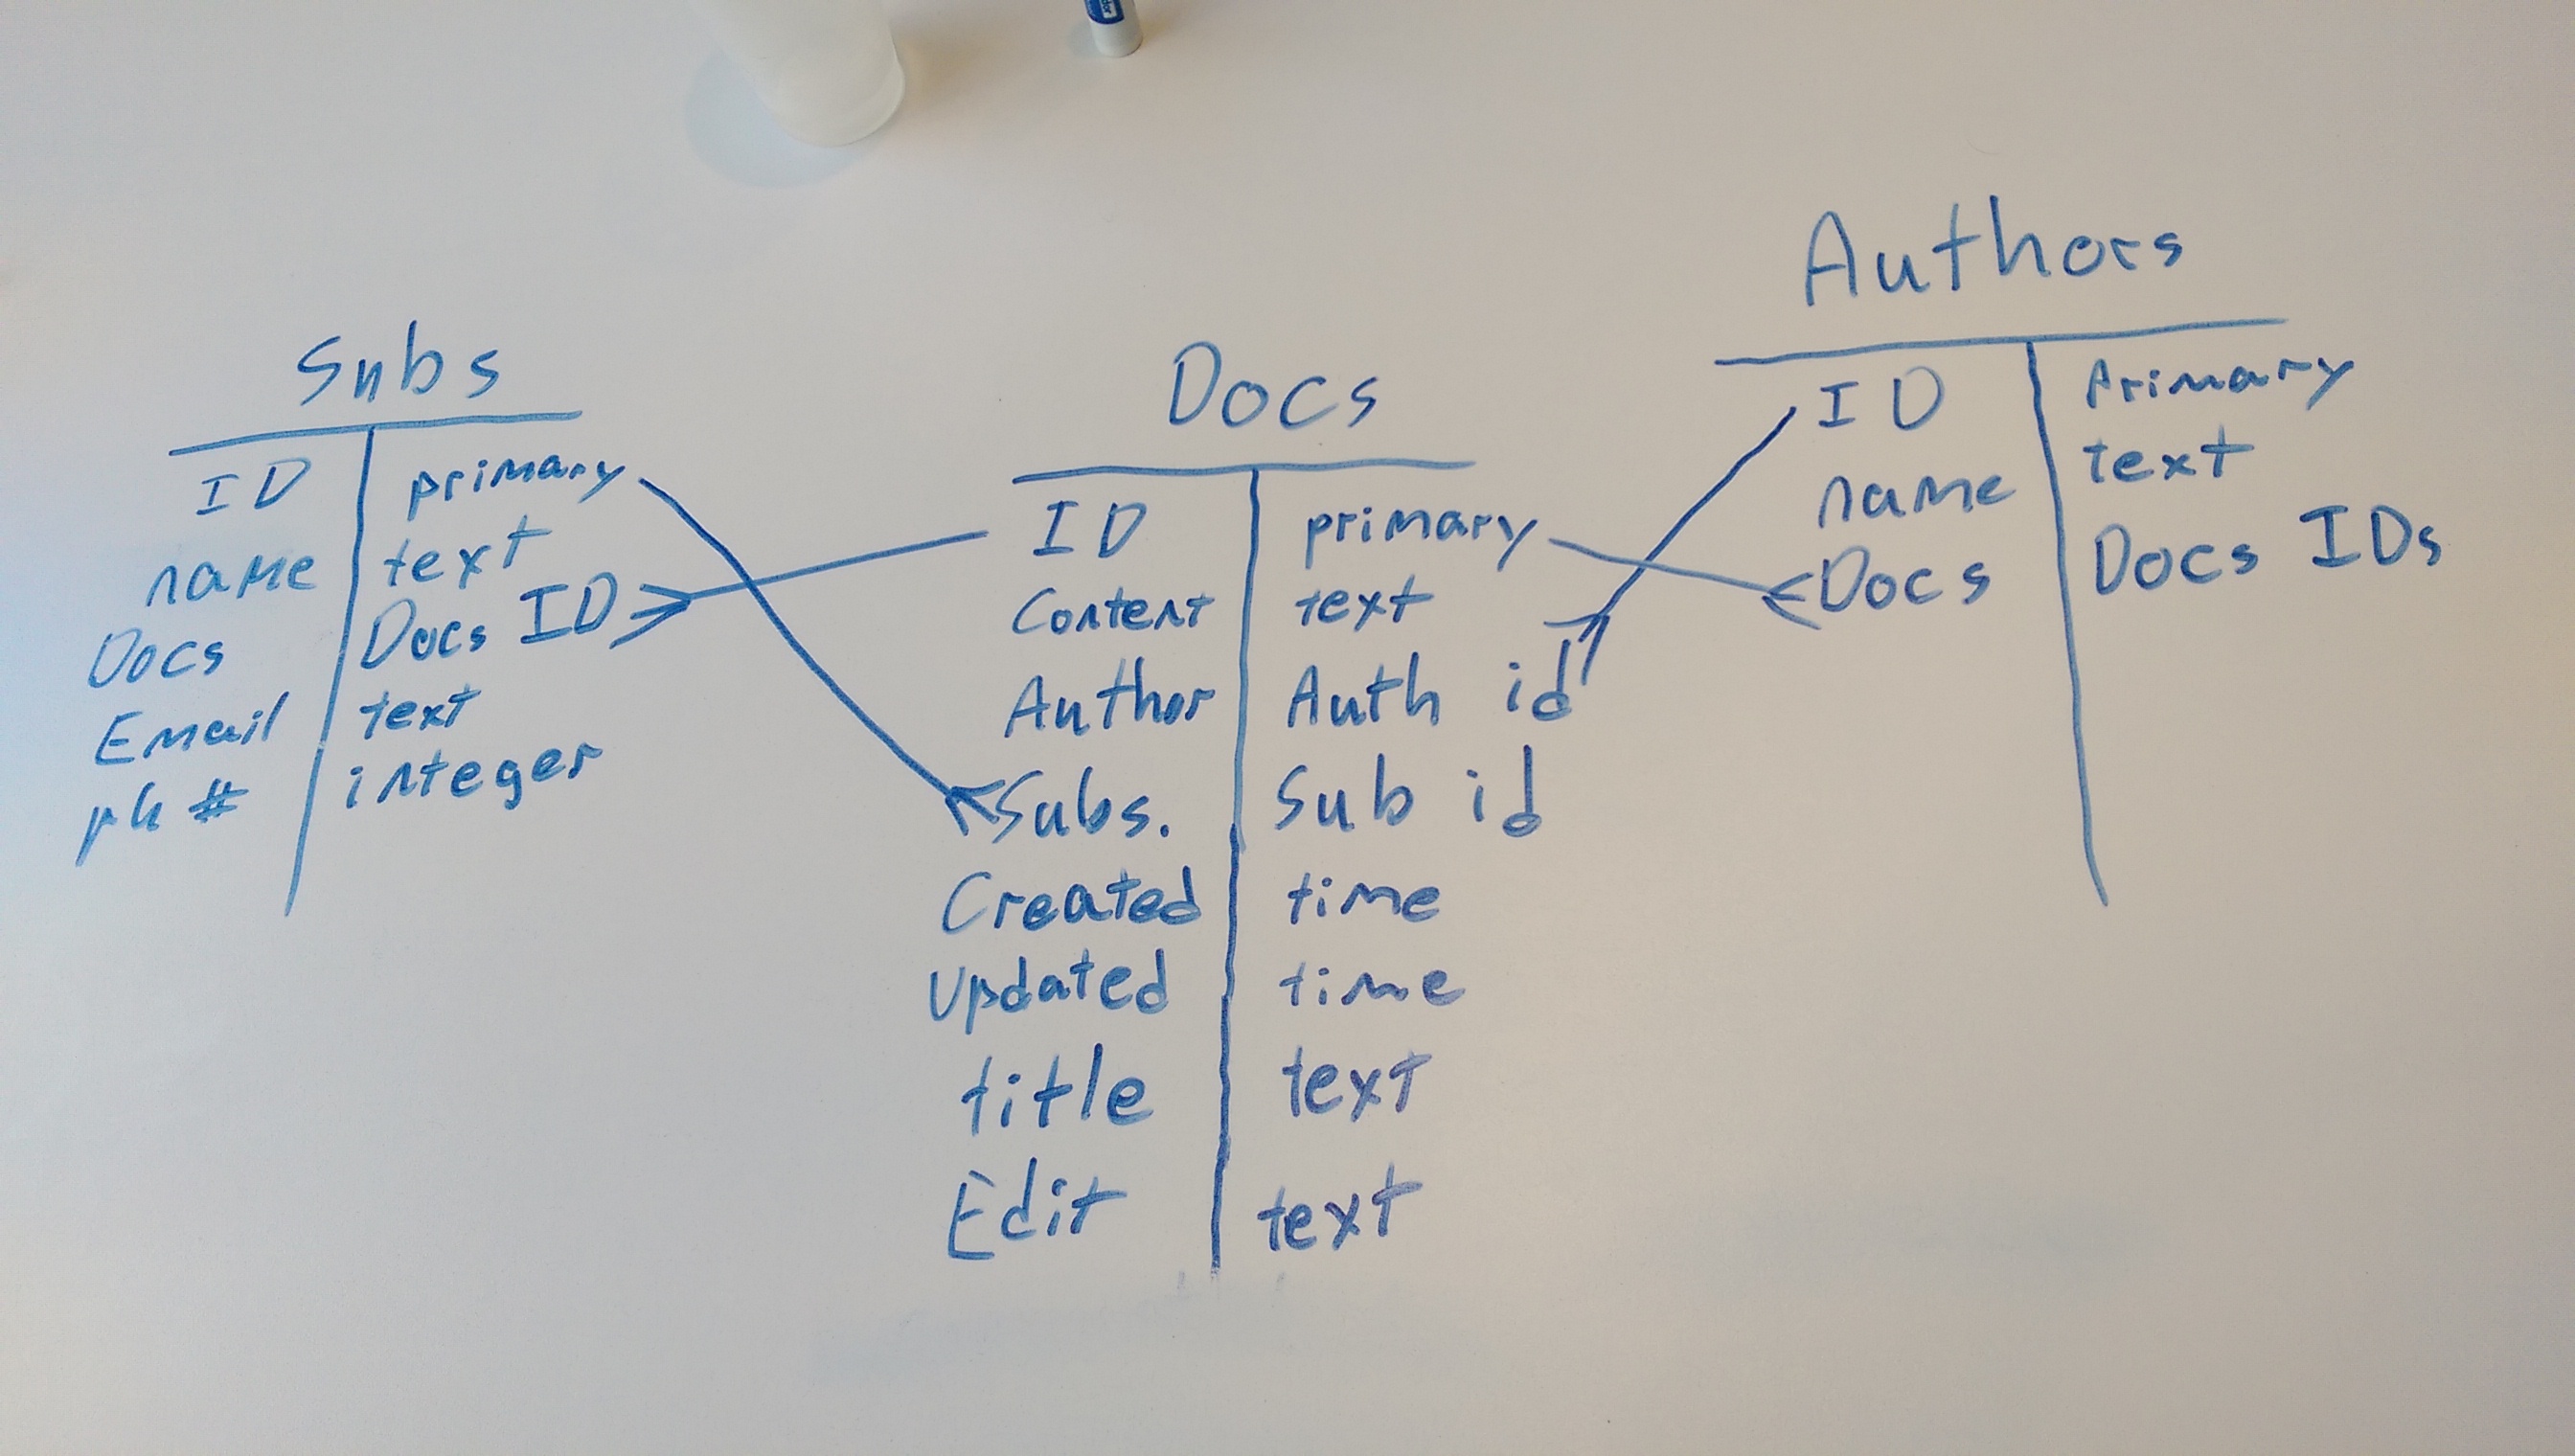 Subs
ID primary
name text
Docs Docs ID
Email text
ph # integer
Docs
ID primary
Content text
Author Auth id
Subs. Sub id
Created time
Updated time
title text
Edit text
Authors
ID Primary
name text
Docs Docs IDs